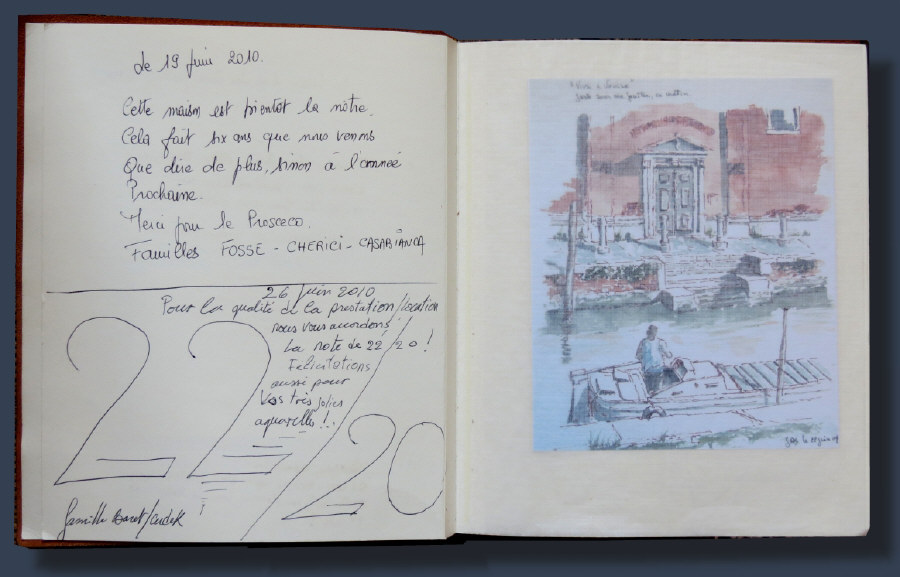 Le 19 Juin 2010.
Cette maison est pientot la nôtre.
Cela fait six ans que nous venons
Que dire de plus, sinon à l'année
Prochaine.
Merci pour le Prosceco.
Familles FOSSE - CHERICI - CASABIANCA
26 Juin 2010
Pour la qualité de la prestation/location
nous vous accordons
La note de 22/20 !
Felicitations
aussi pour
Vos très jolies
aquarelles !..
22/20
Famille